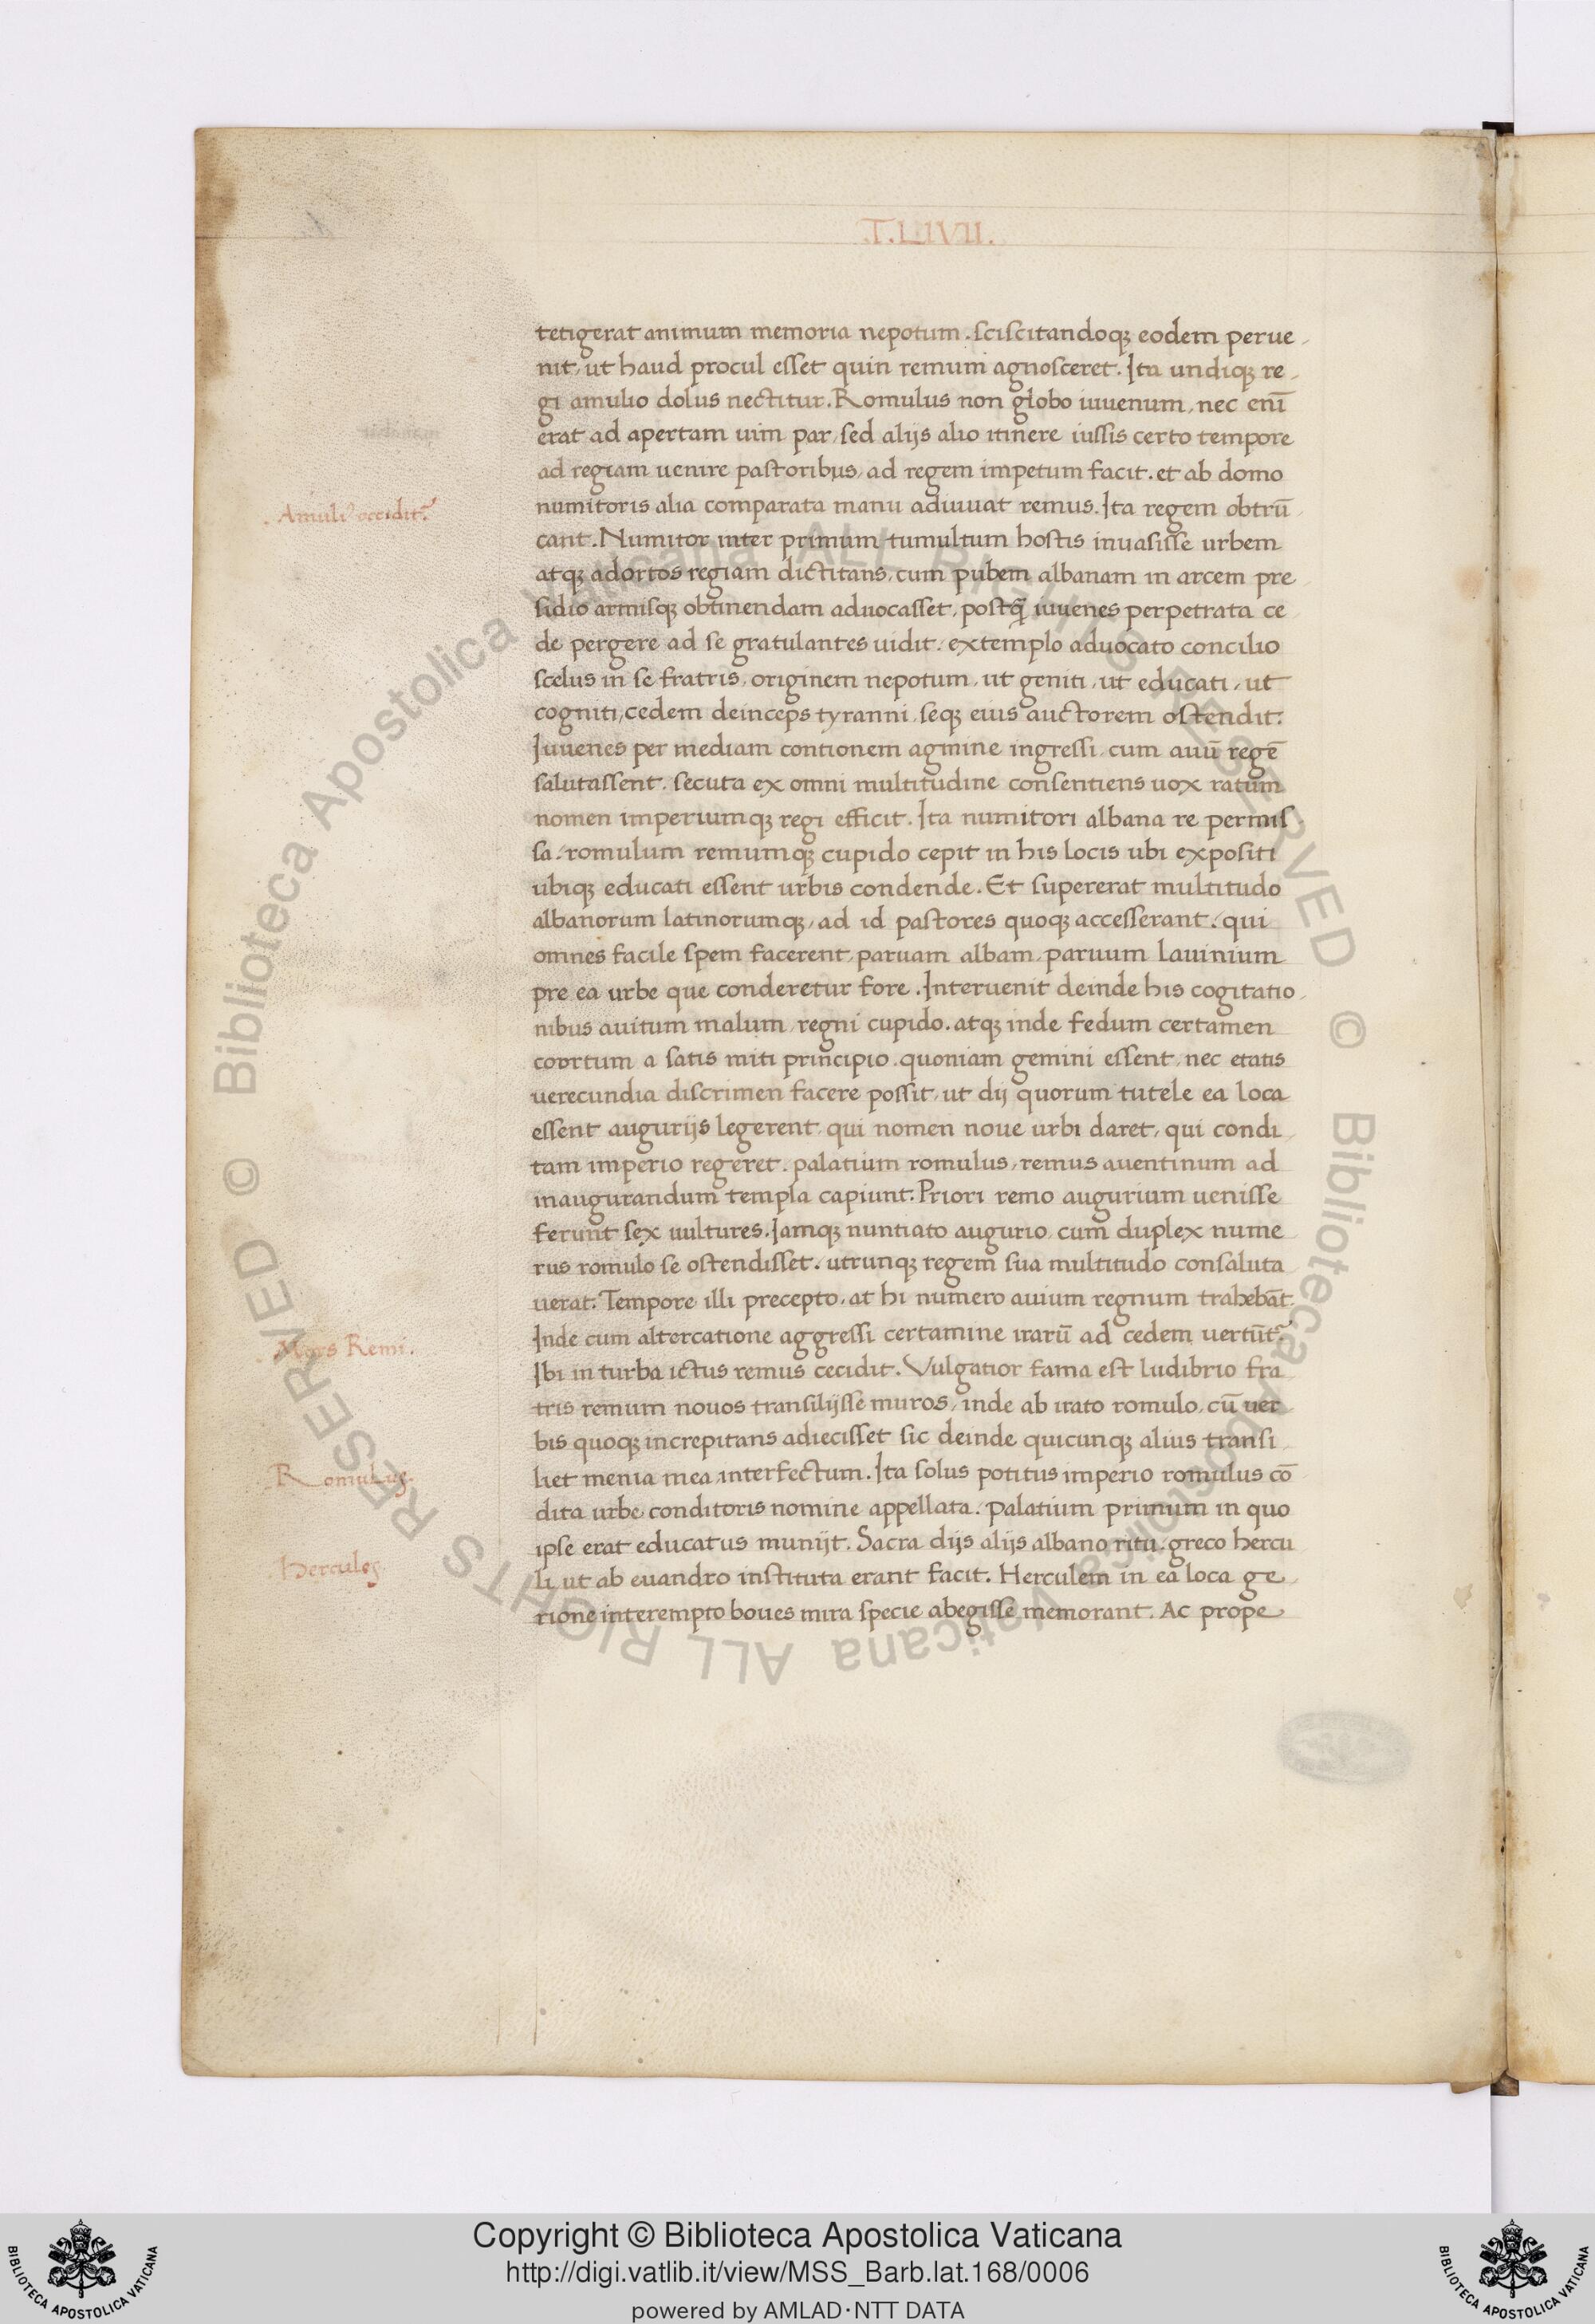 T. LIVII.
tetigerat animum memoria nepotum. sciscitandoqꝫ eodem perue
nit, ut haud procul esset quin remum agnosceret. Ita undiqꝫ re
gi amulio dolus nectitur. Romulus non globo iuuenum, nec enī
erat ad apertam uim par, sed alijs alio itinere iussis certo tempore
ad regiam uenire pastoribus, ad regem impetum facit. et ab domo
numitoris alia comparata manu adiuuat remus. Ita regem obtrū
Amuliꝰ occidit᷑.
cant. Numitor inter primum tumultum hostis inuasisse urbem
atqꝫ adortos regiam dictitans, cum pubem albanam in arcem pre
sidio armisqꝫ obtinendam aduocasset, postq̄ iuuenes perpetrata ce
de pergere ad se gratulantes uidit. extemplo aduocato concilio
scelus in se fratris, originem nepotum, ut geniti, ut educati, ut
cogniti, cedem deinceps tyranni, seqꝫ eius auctorem ostendit.
Iuuenes per mediam contionem agmine ingressi, cum auū regē
salutassent. secuta ex omni multitudine consentiens uox ratum
nomen imperiumqꝫ regi efficit. Ita numitori albana re permis
sa. romulum remumqꝫ cupido cepit in his locis ubi expositi
ubiqꝫ educati essent urbis condende. Et supererat multitudo
albanorum latinorumqꝫ, ad id pastores quoqꝫ accesserant. qui
omnes facile spem facerent, paruam albam, paruum lauinium
pre ea urbe que conderetur fore. Interuenit deinde his cogitatio
nibus auitum malum, regni cupido. atqꝫ inde fedum certamen
coortum a satis miti principio. quoniam gemini essent, nec etatis
uerecundia discrimen facere possit, ut dij quorum tutele ea loca
essent augurijs legerent, qui nomen noue urbi daret, qui condi
tam imperio regeret. palatium romulus, remus auentinum ad
inaugurandum templa capiunt. Priori remo augurium uenisse
ferunt sex uultures. Iamqꝫ nuntiato augurio, cum duplex nume
rus romulo se ostendisset. utrunqꝫ regem sua multitudo consaluta
uerat. Tempore illi precepto, at hi numero auium regnum trahebāt.
Inde cum altercatione aggressi certamine irarū ad cedem uertūt᷑.
Mors Remi.
Ibi in turba ictus remus cecidit. Vulgatior fama est ludibrio fra
tris remum nouos transilijsse muros, inde ab irato romulo, cū uer
bis quoqꝫ increpitans adiecisset sic deinde quicunqꝫ alius transi
liet menia mea, interfectum. Ita solus potitus imperio romulus cō
Romulus.
dita urbe conditoris nomine appellata. palatium primum in quo
ipse erat educatus munijt. Sacra dijs alijs albano ritu, greco hercu
li ut ab euandro instituta erant facit. Herculem in ea loca ge
Hercules
rione interempto boues mira specie abegisse memorant. Ac prope
© Biblioteca Apostolica Vaticana ALL RIGHTS RESERVED © Biblioteca Apostolica Vaticana ALL RIGHTS RESERVED
Copyright © Biblioteca Apostolica Vaticana
http://digi.vatlib.it/view/MSS_Barb.lat.168/0006
powered by AMLAD·NTT DATA
BIBLIOTECA APOSTOLICA VATICANA
BIBLIOTECA APOSTOLICA VATICANA